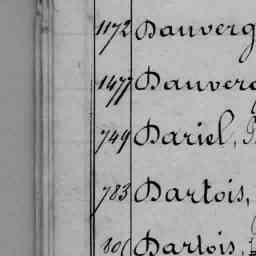 1172 Dauverg
1477 Dauverg
749 Dariel,
783 Dartois,
806 Dartois,